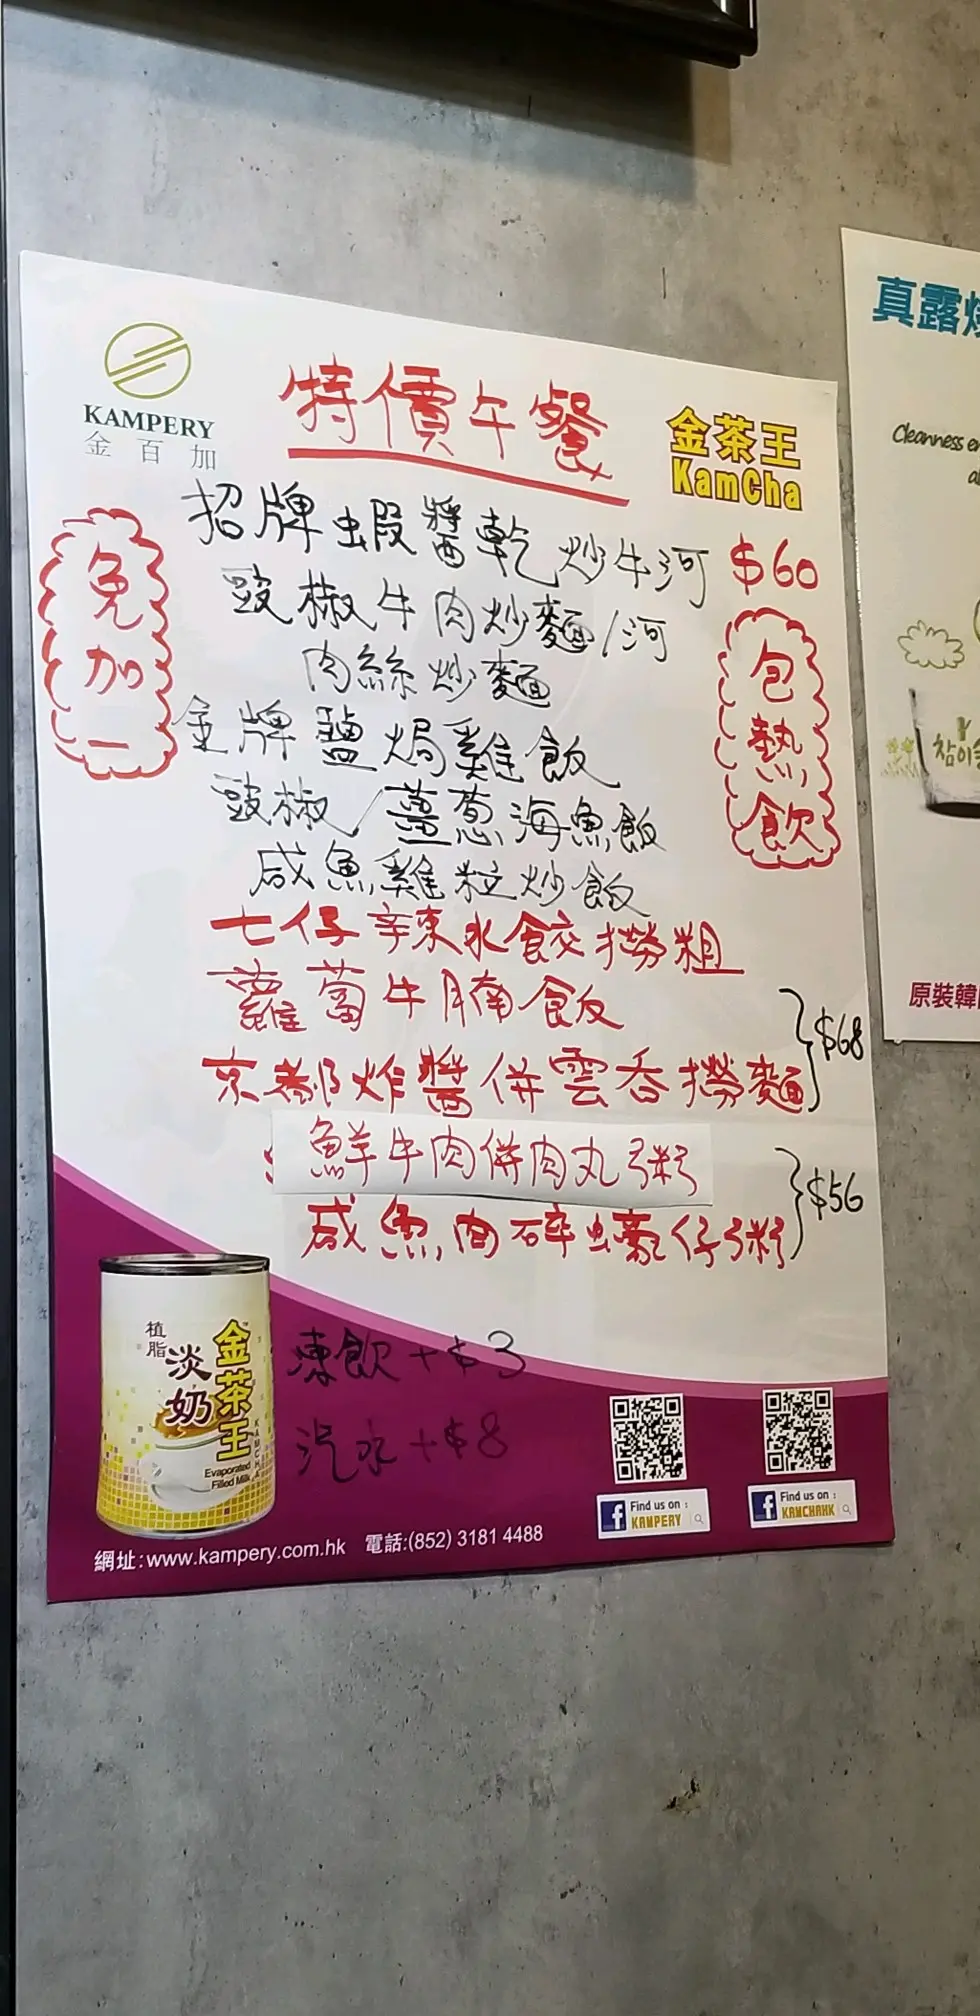 KAMPERY
金百加
特價午餐
金茶王
KamCha
免加一
招牌蝦醬乾炒牛河 $60
豉椒牛肉炒麵/河
肉絲炒麵
金牌鹽焗雞飯
豉椒/薑葱海魚飯
咸魚雞粒炒飯
包熱飲
七仔辛辣水餃撈粗
蘿蔔牛腩飯
京都炸醬併雲吞撈麵
}$68
鮮牛肉併肉丸粥
咸魚肉碎蠔仔粥
}$56
凍飲+$3
汽水+$8
植脂
淡奶
金茶王
KAMCHA
Evaporated
Filled Milk
Find us on :
KAMPERY
Find us on :
KAMCHAHK
網址:www.kampery.com.hk 電話:(852) 3181 4488
真露
Cleanness
原裝韓
참이슬